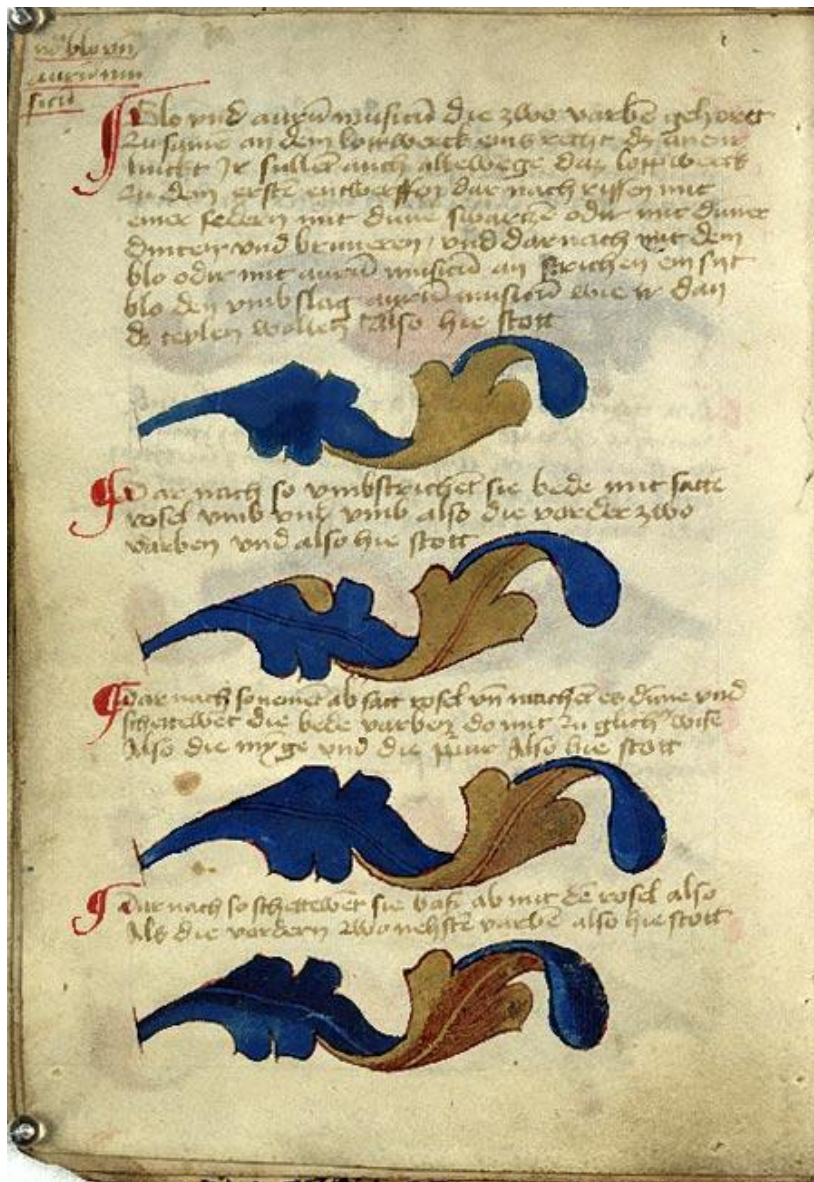 blo vnd
aurum mu
sicum
Blo vnd aurum musicum die zwo varben gehorent
zu samme an dem loupwerck eins recht das ander
Ir sullent auch allewege daz loupwerck
zu dem erste entwerffen dar nach rissen mit
einer federn mit dune swartze oder mit duner
dincten vnd bruneren / vnd darnach mit dem
blo oder mit aurum musicum an strichen ein syt
blo den vmbslag aurum musicum wie ir dan
das teylen wollent Also hie stott
Dar nach so vmbstrichet sie bede mit satte
rosel vmb vnd vmb also die vorder zwo
varben vnd also hie stott
Dar nach so nement ab satt rosel vnd machent es dunne vnd
schettewet die bede varben do mit zu glich wise
Also die mynge vnd die Also hie stott
Dar nach so schettewent sie baß ab mit dem rosel also
Als die vordern zwo nehste varben also hie stott